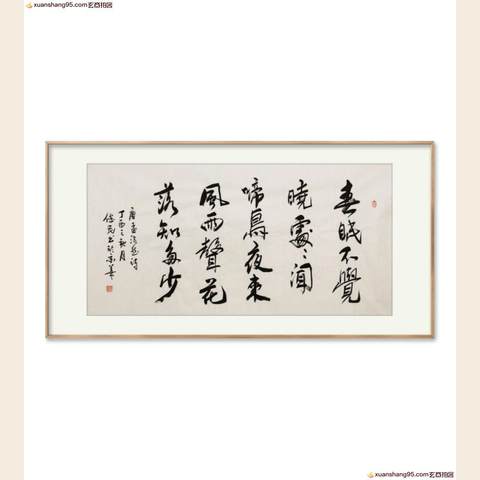 xuanshang95.com玄酉拍図
春眠不覺
曉處〻聞
啼鳥夜来
風雨聲花
落知多少
唐孟浩然诗
丁酉之秋月
xuanshang95.com玄酉拍図